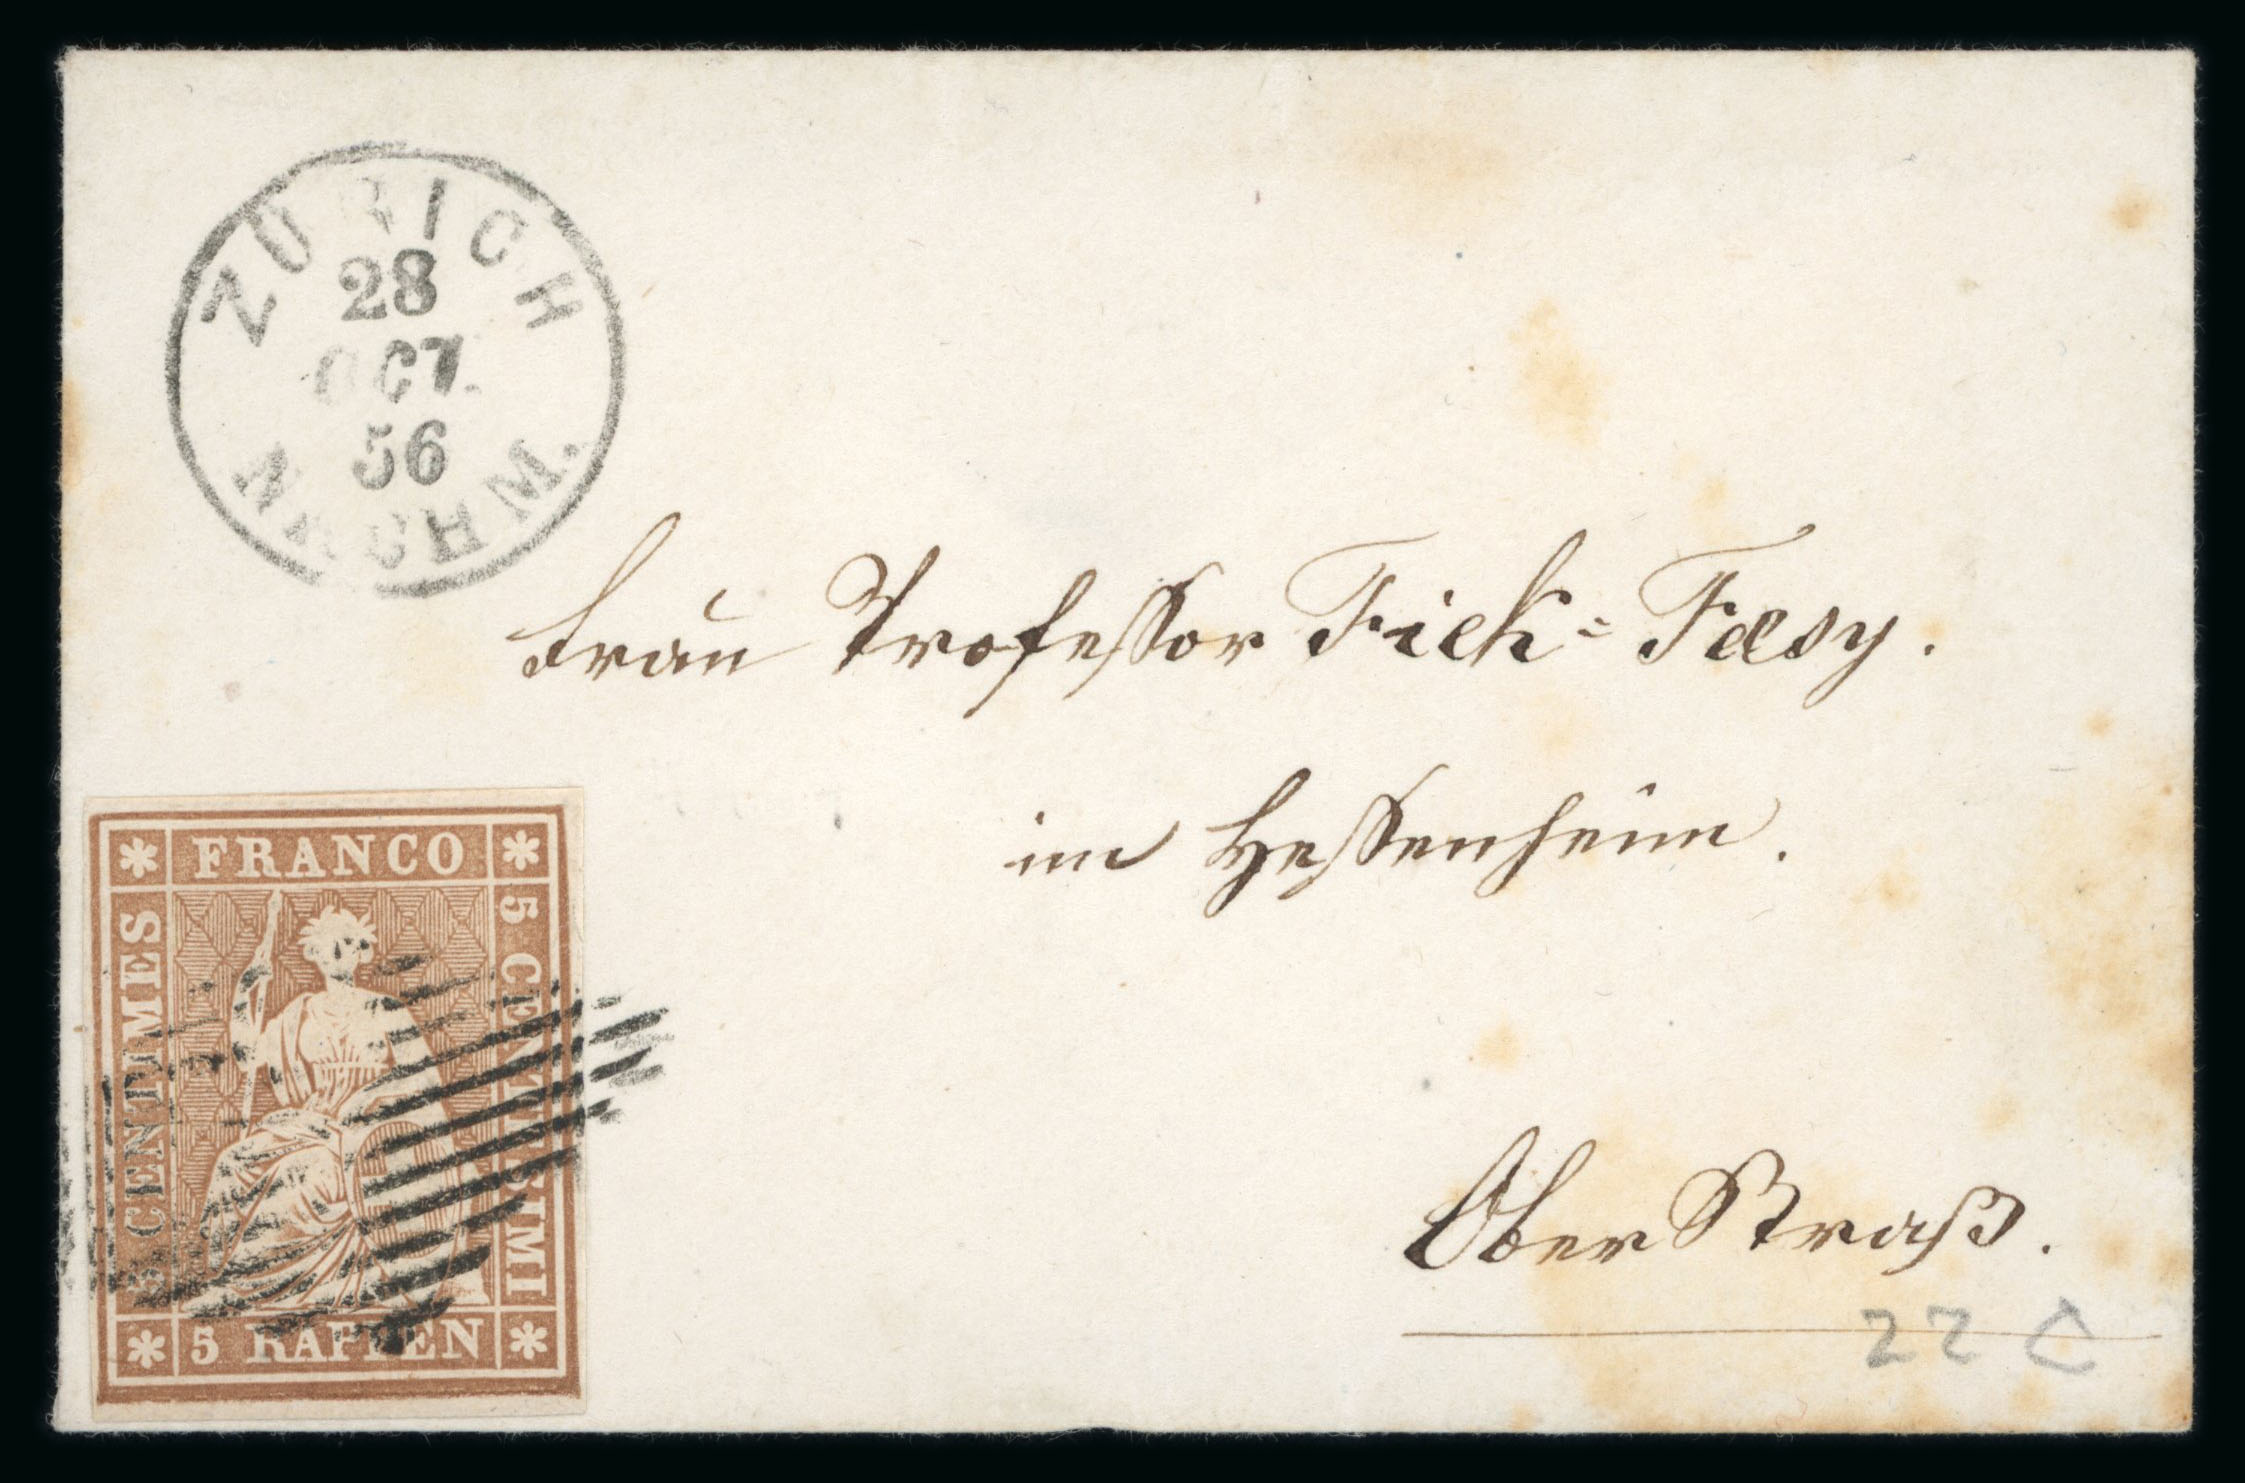 ZÜRICH
28
OCT.
56
NACHM.
Frau Professor Fick=Fæsy.
im Hessenheim.
Oberstraß.
22 C
FRANCO
5 CENTIMES
5 CENTESIMI
5 RAPPEN